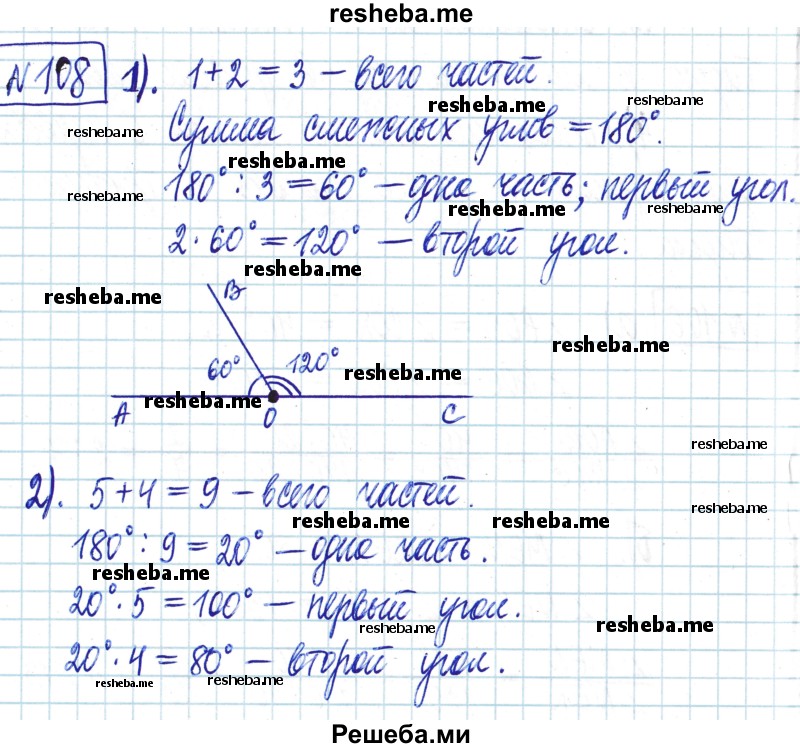 resheba.me
№ 108 1). 1+2 = 3 – всего частей.
resheba.me resheba.me
resheba.me Сумма смежных углов = 180°.
resheba.me
resheba.me 180° : 3 = 60° – одна часть; первый угол.
resheba.me resheba.me
2 · 60° = 120° – второй угол.
resheba.me
resheba.me B
resheba.me
60° 120° resheba.me
resheba.me
A O C
resheba.me
2). 5+4 = 9 – всего частей.
resheba.me
resheba.me resheba.me
180° : 9 = 20° – одна часть.
resheba.me
20° · 5 = 100° – первый угол.
resheba.me resheba.me
20° · 4 = 80° – второй угол.
resheba.me resheba.me
Решеба.ми